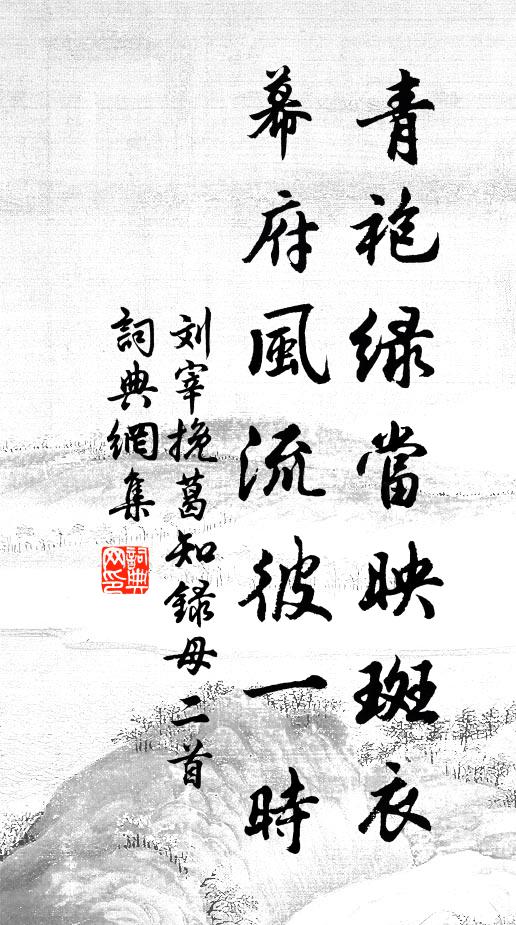 青袍緑當映斑衣
幕府風流彼一時
刘宰挽葛知錄母二首
詞典網集
詞典网印